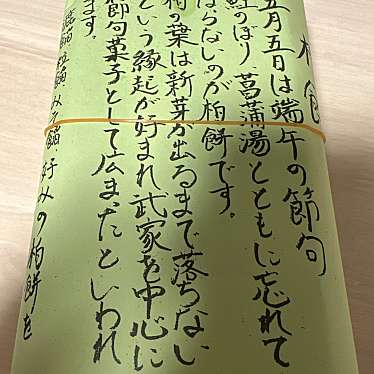 柏餅
五月五日は端午の節句
鯉のぼり、菖蒲湯とともに忘れて
ならないのが柏餅です。
柏の葉は新芽が出るまで落ちない
という縁起が好まれ武家を中心に
節句菓子として広まったといわれ
ます。
餡 好みの柏餅を